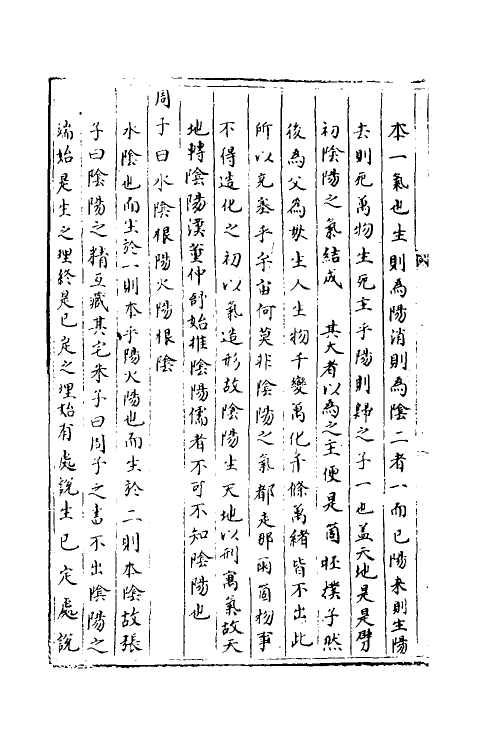 本一氣也生則為陽消則為陰二者一而已陽来則生陽
去則死萬物生死主乎陽則歸之于一也盖天地是是劈
初陰陽之氣結成 其大者以為之主便是箇胚撲子然
後為父為母生人生物千變萬化千條萬緒皆不出此
所以充塞乎宇宙何莫非陰陽之氣都走那兩箇物事
不得造化之初以氣造形故陰陽生天地以刑寓氣故天
地轉陰陽漢董仲舒始推陰陽儒者不可不知陰陽也
周子曰水陰根陽火陽根陰
水陰也而生於一則本乎陽火陽也而生於二則本陰故張
子曰陰陽之精互藏其宅朱子曰周子之書不出陰陽之
端始是生之理終是已定之理始有處說生已定處說